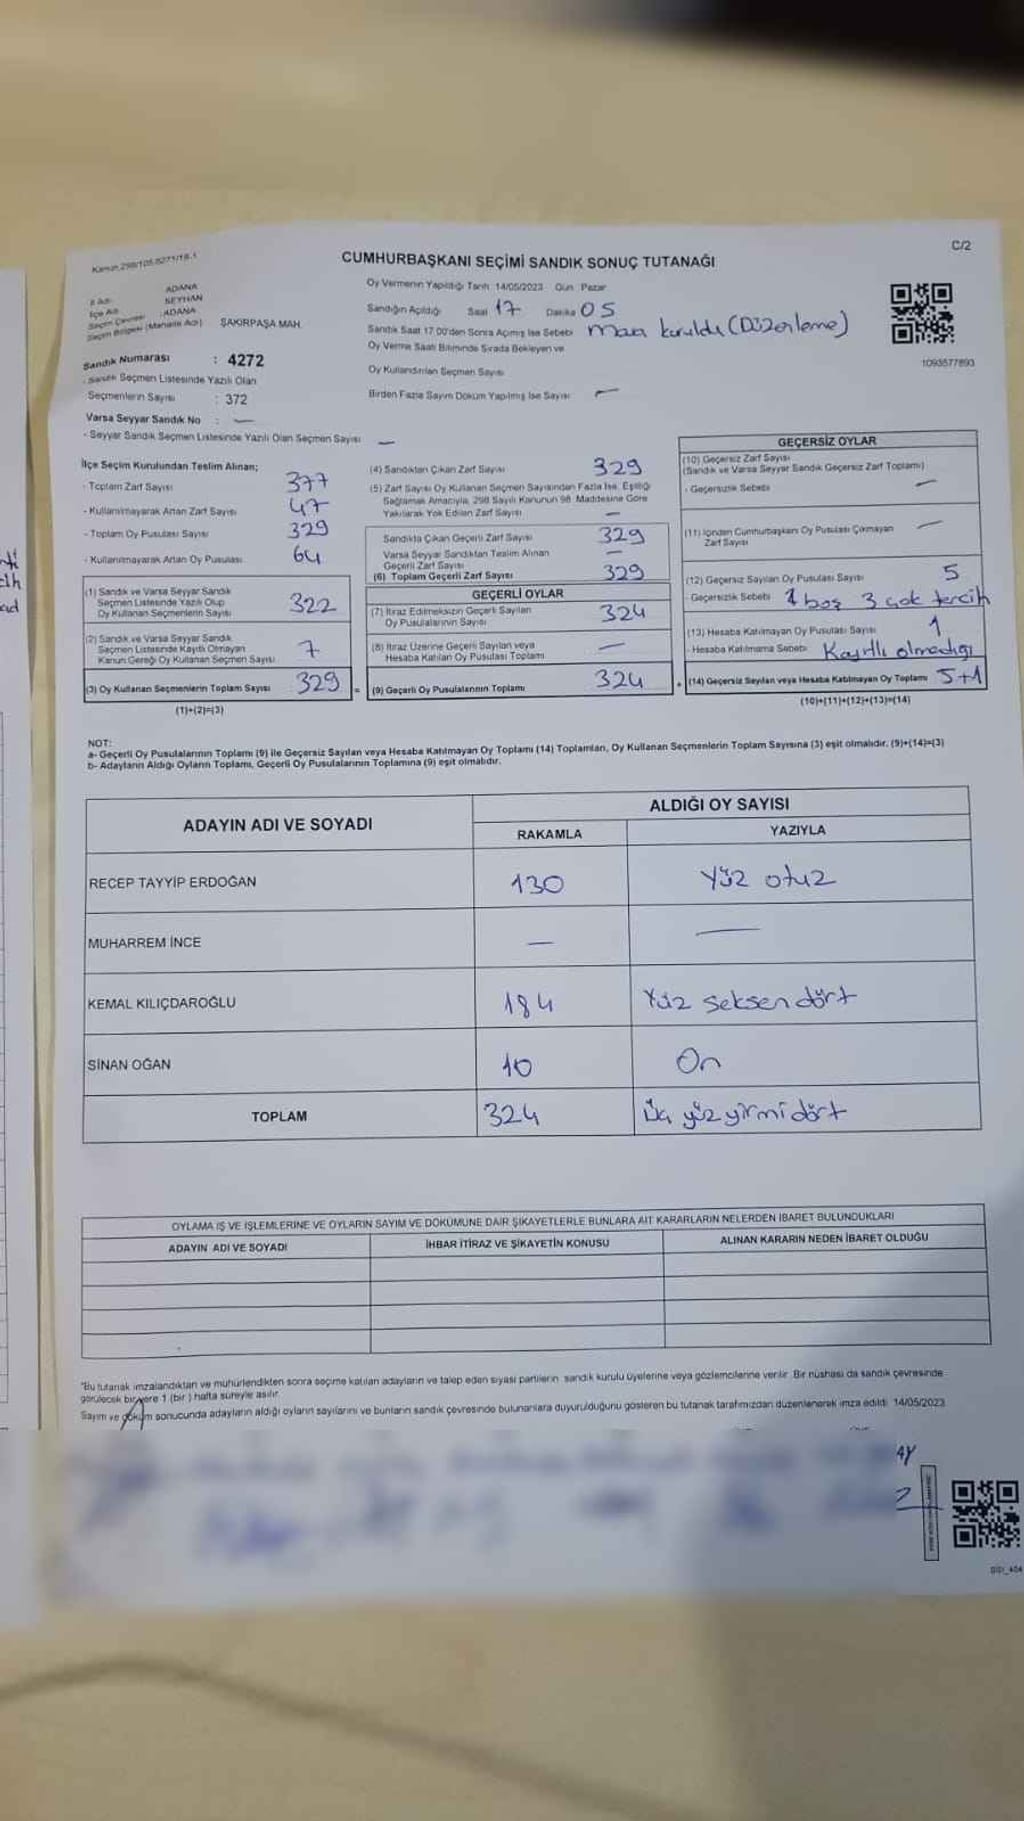 C/2
Kanun 298/105.8271/18-1
CUMHURBAŞKANI SEÇİMİ SANDIK SONUÇ TUTANAĞI
İl Adı ADANA
İlçe Adı SEYHAN
Seçim Çevresi : ADANA
Seçim Bölgesi (Mahalle Adı) ŞAKİRPAŞA MAH.
Sandık Numarası : 4272
- Sandık Seçmen Listesinde Yazılı Olan
Seçmenlerin Sayısı : 372
Varsa Seyyar Sandık No : —
- Seyyar Sandık Seçmen Listesinde Yazılı Olan Seçmen Sayısı —
Oy Vermenin Yapıldığı Tarih: 14/05/2023 Gün: Pazar
Sandığın Açıldığı Saat 17 Dakika 05
Sandık Saat 17.00'den Sonra Açılmış İse Sebebi Masa kuruldu (Düzenleme)
Oy Verme Saati Bitiminde Sırada Bekleyen ve
Oy Kullandırılan Seçmen Sayısı
Birden Fazla Sayım Döküm Yapılmış İse Sayısı —
1093577893
İlçe Seçim Kurulundan Teslim Alınan;
- Toplam Zarf Sayısı 377
- Kullanılmayarak Artan Zarf Sayısı 47
- Toplam Oy Pusulası Sayısı 329
- Kullanılmayarak Artan Oy Pusulası 64
(1) Sandık ve Varsa Seyyar Sandık
Seçmen Listesinde Yazılı Olup
Oy Kullanan Seçmenlerin Sayısı 322
(2) Sandık ve Varsa Seyyar Sandık
Seçmen Listesinde Kayıtlı Olmayan
Kanun Gereği Oy Kullanan Seçmen Sayısı 7
(3) Oy Kullanan Seçmenlerin Toplam Sayısı 329 =
(1)+(2)=(3)
(4) Sandıktan Çıkan Zarf Sayısı 329
(5) Zarf Sayısı Oy Kullanan Seçmen Sayısından Fazla İse, Eşitliği
Sağlamak Amacıyla, 298 Sayılı Kanunun 98. Maddesine Göre
Yakılarak Yok Edilen Zarf Sayısı —
Sandıkta Çıkan Geçerli Zarf Sayısı 329
Varsa Seyyar Sandıktan Teslim Alınan
Geçerli Zarf Sayısı —
(6) Toplam Geçerli Zarf Sayısı 329
GEÇERLİ OYLAR
(7) İtiraz Edilmeksizin Geçerli Sayılan
Oy Pusulalarının Sayısı 324
(8) İtiraz Üzerine Geçerli Sayılan veya
Hesaba Katılan Oy Pusulası Toplamı —
(9) Geçerli Oy Pusulalarının Toplamı 324 +
GEÇERSİZ OYLAR
(10) Geçersiz Zarf Sayısı
(Sandık ve Varsa Seyyar Sandık Geçersiz Zarf Toplamı) —
- Geçersizlik Sebebi
(11) İçinden Cumhurbaşkanı Oy Pusulası Çıkmayan
Zarf Sayısı —
(12) Geçersiz Sayılan Oy Pusulası Sayısı 5
- Geçersizlik Sebebi 1 boş 3 çok tercih
(13) Hesaba Katılmayan Oy Pusulası Sayısı 1
- Hesaba Katılmama Sebebi Kayıtlı olmadığı
(14) Geçersiz Sayılan veya Hesaba Katılmayan Oy Toplamı 5+1
(10)+(11)+(12)+(13)=(14)
NOT:
a- Geçerli Oy Pusulalarının Toplamı (9) ile Geçersiz Sayılan veya Hesaba Katılmayan Oy Toplamı (14) Toplamları, Oy Kullanan Seçmenlerin Toplam Sayısına (3) eşit olmalıdır. (9)+(14)=(3)
b- Adayların Aldığı Oyların Toplamı, Geçerli Oy Pusulalarının Toplamına (9) eşit olmalıdır.
ADAYIN ADI VE SOYADI ALDIĞI OY SAYISI
RAKAMLA YAZIYLA
RECEP TAYYİP ERDOĞAN 130 Yüz otuz
MUHARREM İNCE — —
KEMAL KILIÇDAROĞLU 184 Yüz seksen dört
SİNAN OĞAN 10 On
TOPLAM 324 Üç yüz yirmi dört
OYLAMA İŞ VE İŞLEMLERİNE VE OYLARIN SAYIM VE DÖKÜMÜNE DAİR ŞİKAYETLERLE BUNLARA AİT KARARLARIN NELERDEN İBARET BULUNDUKLARI
ADAYIN ADI VE SOYADI İHBAR İTİRAZ VE ŞİKAYETİN KONUSU ALINAN KARARIN NEDEN İBARET OLDUĞU
"Bu tutanak imzalandıktan ve mühürlendikten sonra seçime katılan adayların ve talep eden siyasi partilerin sandık kurulu üyelerine veya gözlemcilerine verilir. Bir nüshası da sandık çevresinde
görülecek bir yere 1 (bir) hafta süreyle asılır.
Sayım ve döküm sonucunda adayların aldığı oyların sayılarını ve bunların sandık çevresinde bulunanlara duyurulduğunu gösteren bu tutanak tarafımızdan düzenlenerek imza edildi. 14/05/2023